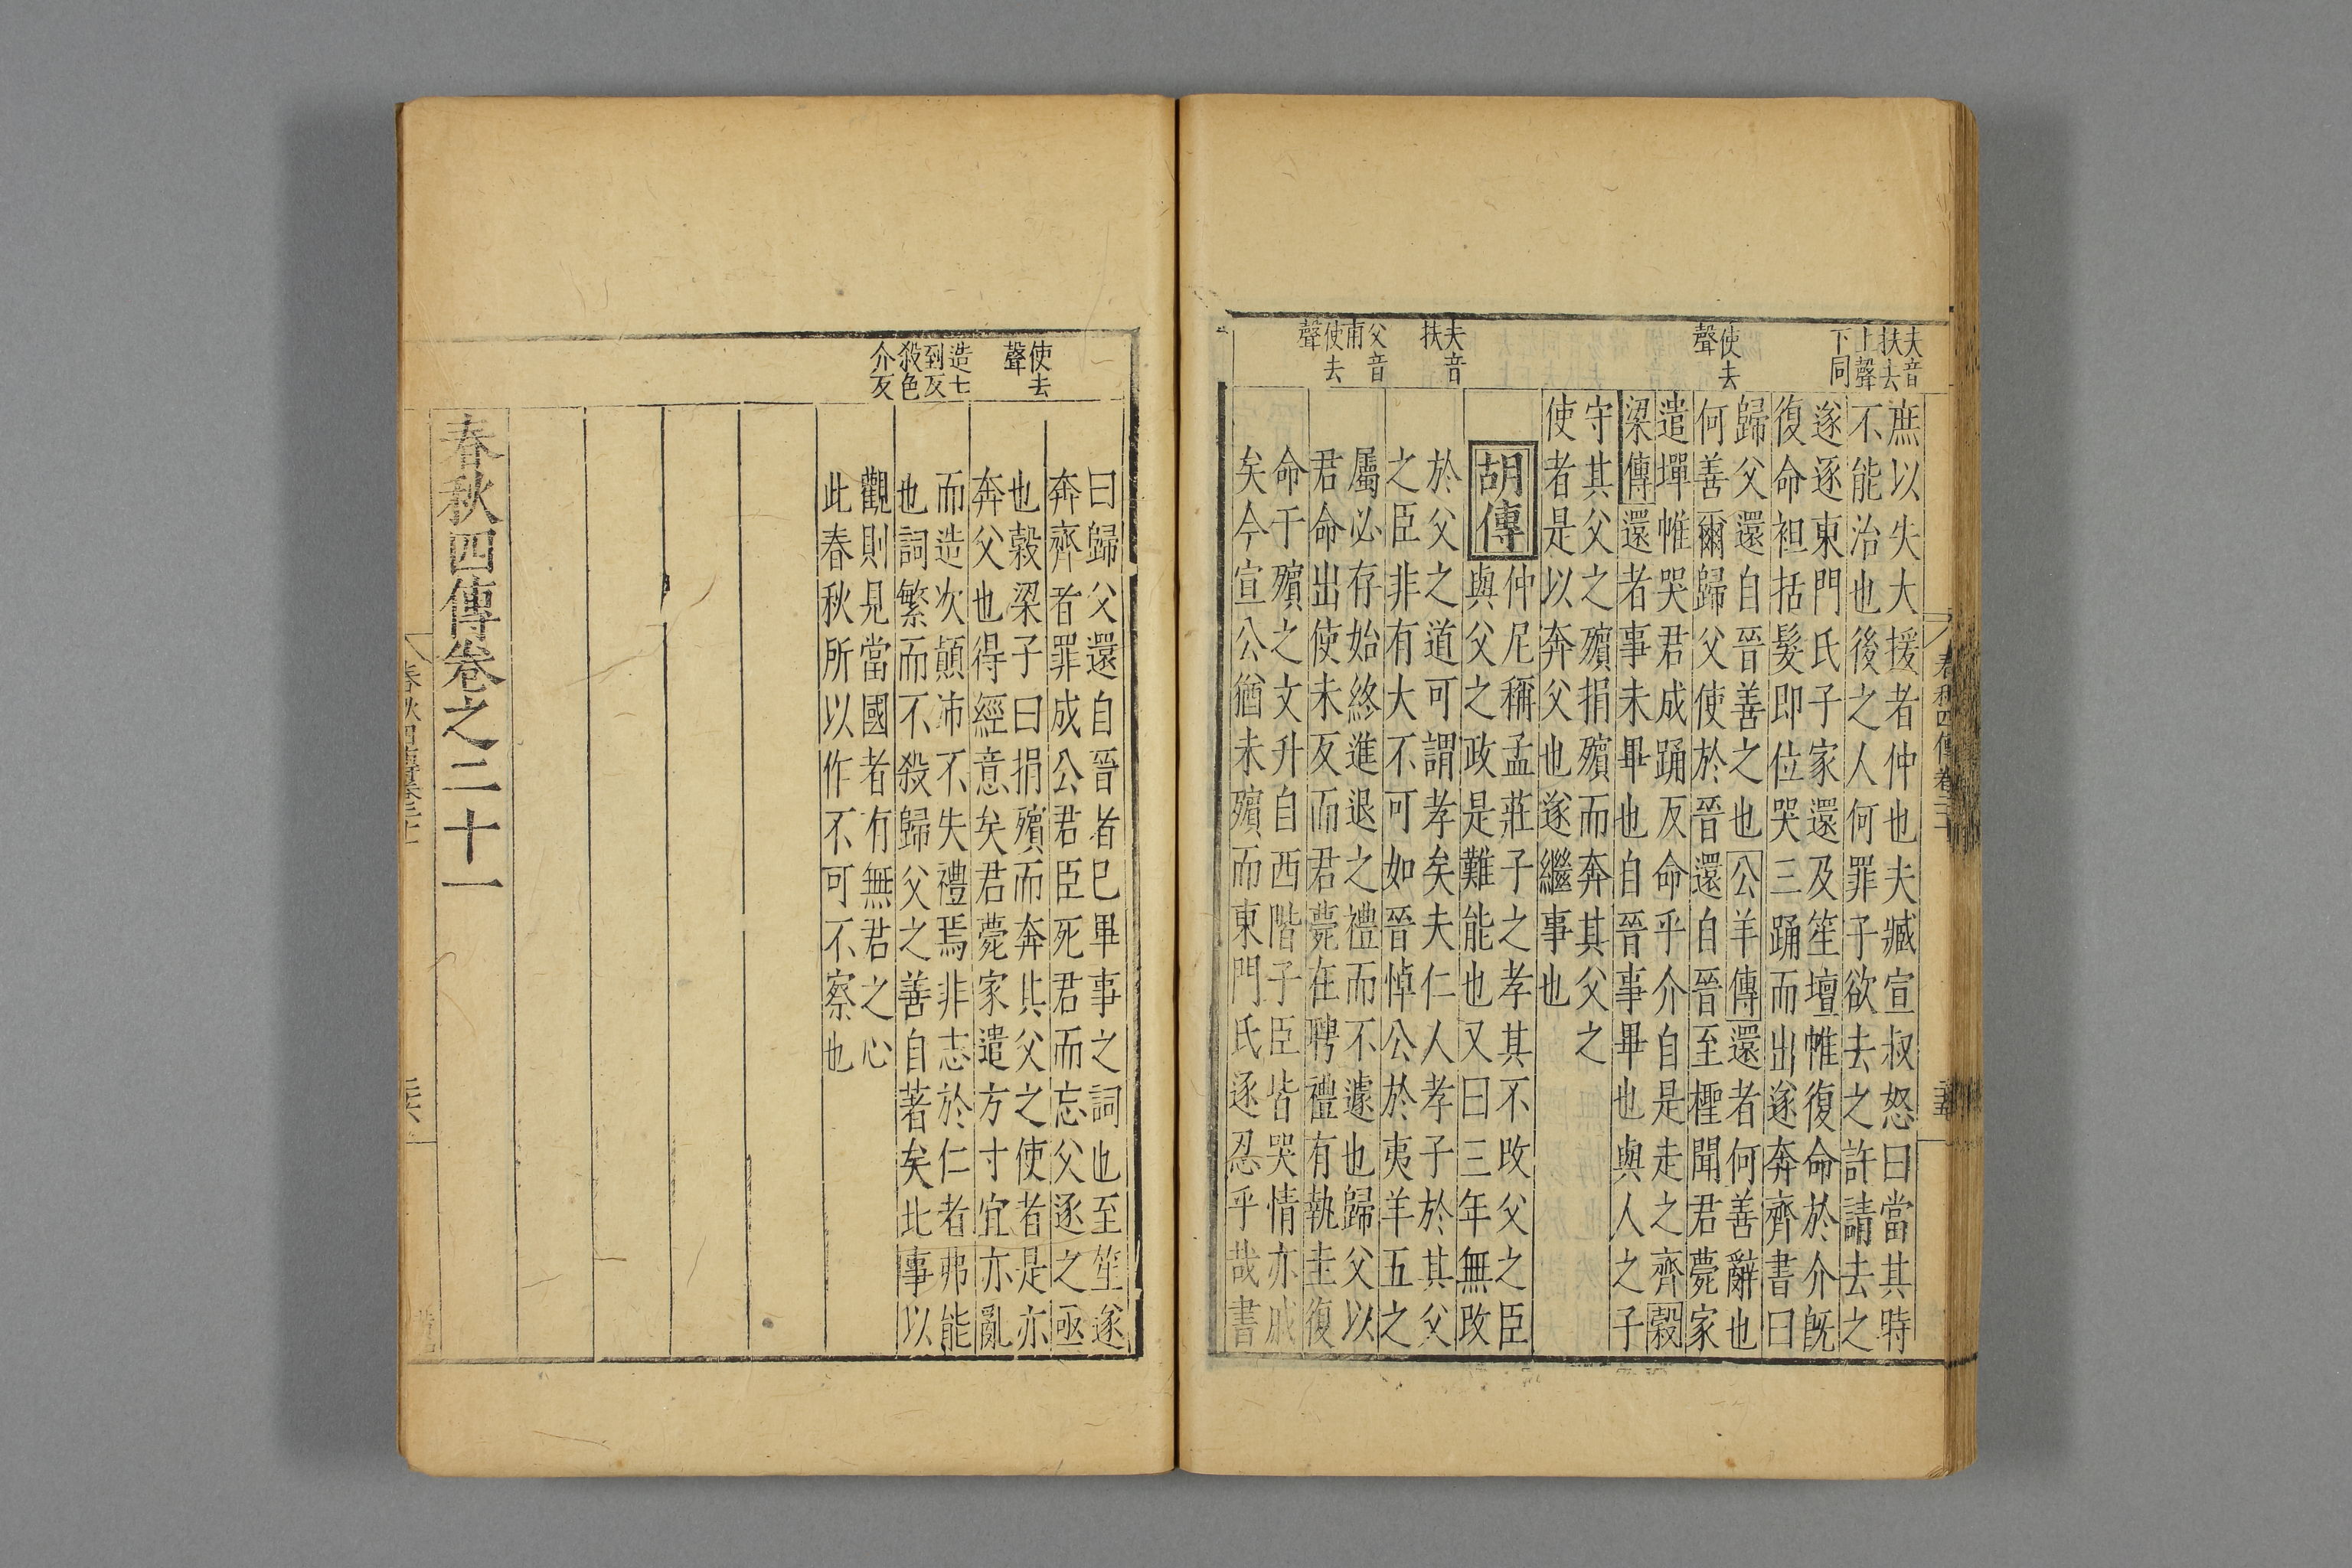 夫音
扶去
上聲
下同
使去
聲
夫音
扶
父音
甫
使去
聲
庶以失大援者仲也夫臧宣叔怒曰當其時
不能治也後之人何罪子欲去之許請去之
遂逐東門氏子家還及笙壇帷復命於介既
復命袒括髮即位哭三踊而出遂奔齊書曰
歸父還自晉善之也公羊傳還者何善辭也
何善爾歸父使於晉還自晉至檉聞君薨家
遣墠帷哭君成踊反命乎介自是走之齊穀
梁傳還者事未畢也自晉事畢也與人之子
守其父之殯捐殯而奔其父之
使者是以奔父也遂繼事也
胡傳
仲尼稱孟莊子之孝其不改父之臣
與父之政是難能也又曰三年無改
於父之道可謂孝矣夫仁人孝子於其父
之臣非有大不可如晉悼公於夷羊五之
屬必存始終進退之禮而不遽也歸父以
君命出使未反而君薨在聘禮有執圭復
命于殯之文升自西階子臣皆哭情亦戚
矣今宣公猶未殯而東門氏逐忍乎哉書
春秋四傳卷二十一
三十五
使去
聲
造七
到反
殺色
介反
曰歸父還自晉者已畢事之詞也至笙遂
奔齊者罪成公君臣死君而忘父逐之亟
也穀梁子曰捐殯而奔其父之使者是亦
奔父也得經意矣君薨家遣方寸宜亦亂
而造次顛沛不失禮焉非志於仁者弗能
也詞繁而不殺歸父之善自著矣此事以
觀則見當國者有無君之心
此春秋所以作不可不察也
春秋四傳卷之二十一